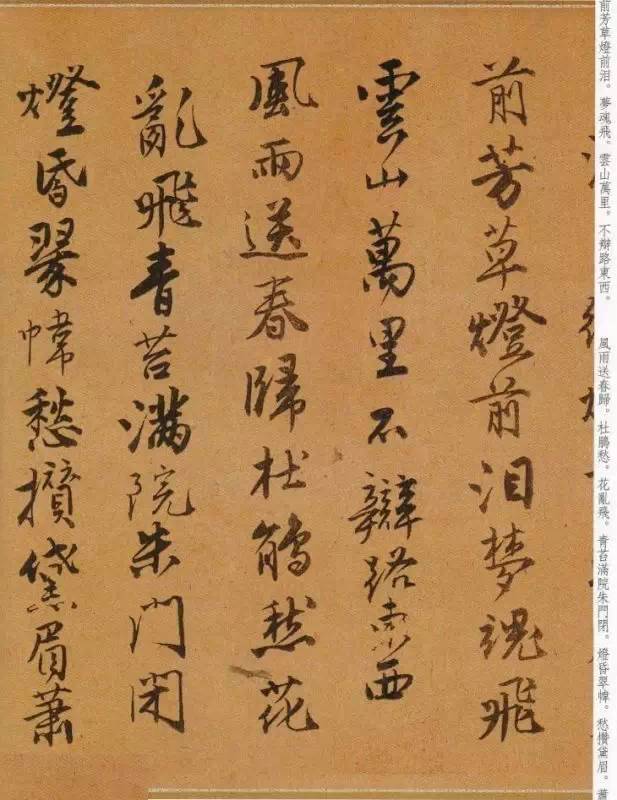 前芳草燈前泪。夢魂飛。雲山萬里。不辯路東西。　風雨送春歸。杜鵑愁。花亂飛。青苔滿院朱門閉。燈昏翠幃。愁攢黛眉。蕭
前芳草燈前泪梦魂飛
雲山萬里不辯路東西
風雨送春歸杜鵑愁花
亂飛青苔滿院朱門閉
燈昏翠幃愁攢黛眉蕭